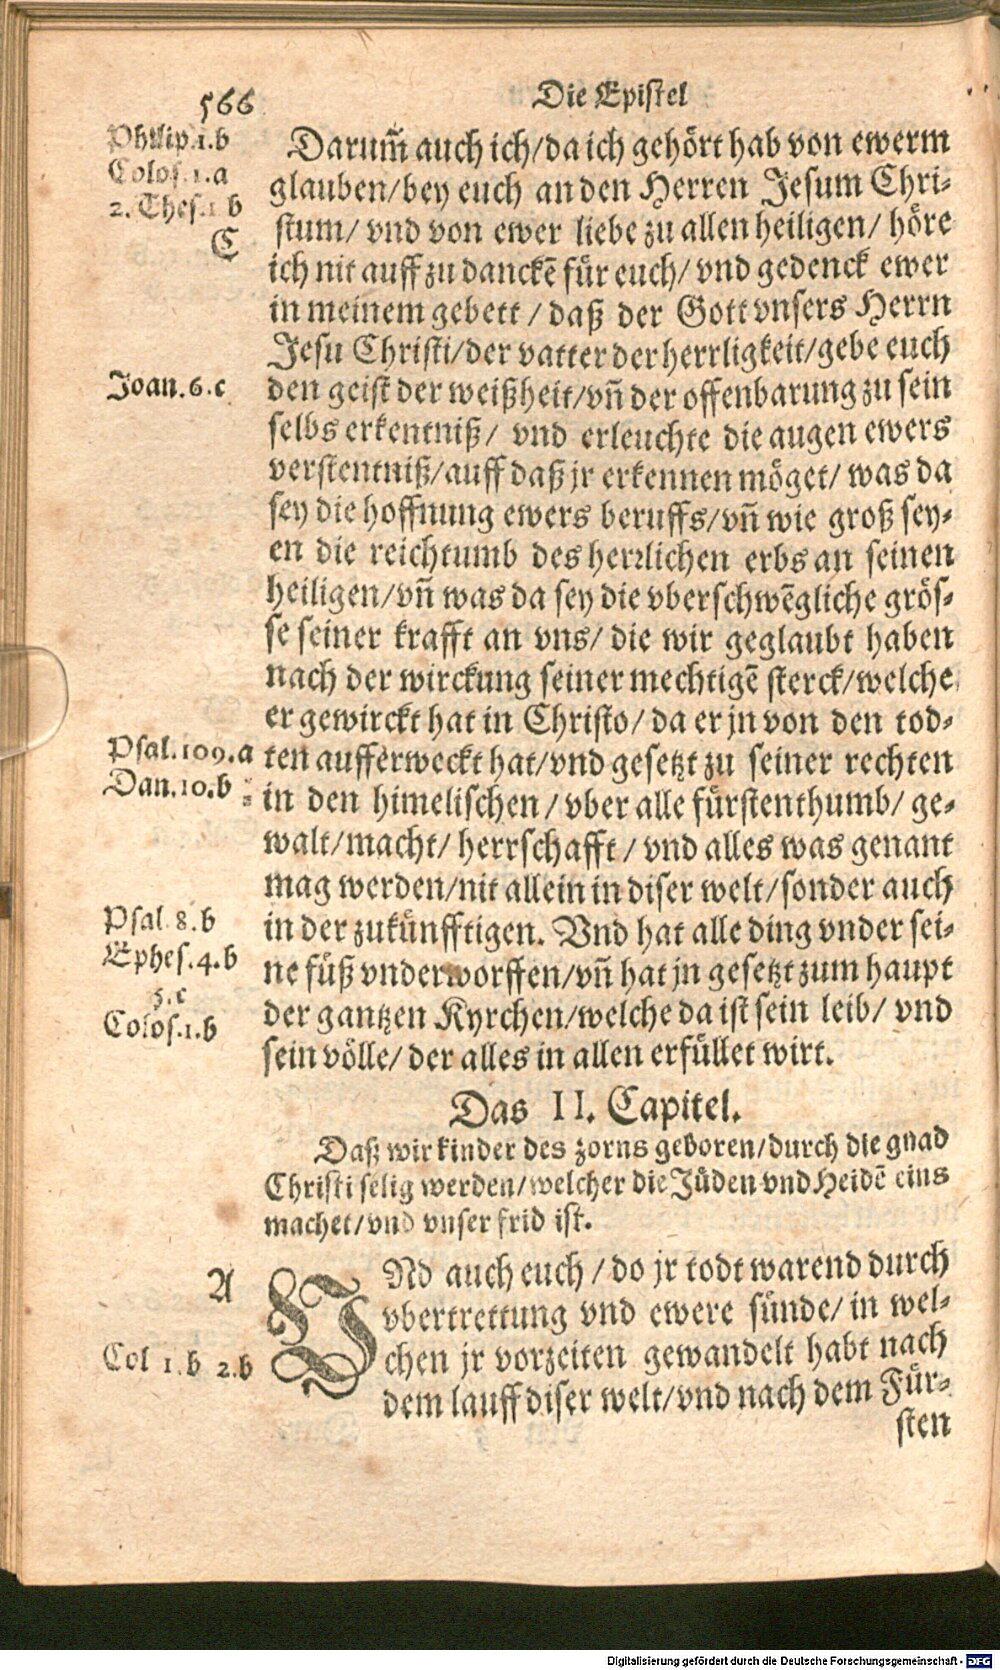 566
Die Epistel
Philip.1.b
Colos.1.a
2.Thes.1 b
C
Darum̃ auch ich/da ich gehört hab von ewerm
glauben/bey euch an den Herren Jesum Chri-
stum/ vnd von ewer liebe zu allen heiligen/ höre
ich nit auff zu danckē für euch/ vnd gedenck ewer
in meinem gebett / daß der Gott vnsers Herrn
Jesu Christi/der vatter der herrligkeit/gebe euch
Joan.6.c
den geist der weißheit/vñ der offenbarung zu sein
selbs erkentniß/ vnd erleuchte die augen ewers
verstentniß/auff daß jr erkennen möget/ was da
sey die hoffnung ewers beruffs/vñ wie groß sey-
en die reichtumb des herrlichen erbs an seinen
heiligen/vñ was da sey die vberschwēgliche grös-
se seiner krafft an vns/ die wir geglaubt haben
nach der wirckung seiner mechtigē sterck/welche
er gewirckt hat in Christo/ da er jn von den tod-
Psal.109.a
Dan.10.b
ten aufferweckt hat/vnd gesetzt zu seiner rechten
in den himelischen / vber alle fürstenthumb/ ge-
walt/macht/ herrschafft / vnd alles was genant
mag werden/nit allein in diser welt/sonder auch
Psal 8.b
Ephes.4.b
5.c
Colos.1.b
in der zukünfftigen. Vnd hat alle ding vnder sei-
ne füß vnderworffen/vñ hat jn gesetzt zum haupt
der gantzen Kyrchen/welche da ist sein leib/ vnd
sein völle/ der alles in allen erfüllet wirt.
Das II. Capitel.
Daß wir kinder des zorns geboren/durch die gnad
Christi selig werden/welcher die Jüden vnd Heidē eins
machet/vnd vnser frid ist.
A
Col 1.b 2.b
VNd auch euch / do jr todt warend durch
vbertrettung vnd ewere sünde/ in wel-
chen jr vorzeiten gewandelt habt nach
dem lauff diser welt/vnd nach dem Für-
sten
Digitalisierung gefördert durch die Deutsche Forschungsgemeinschaft - DFG